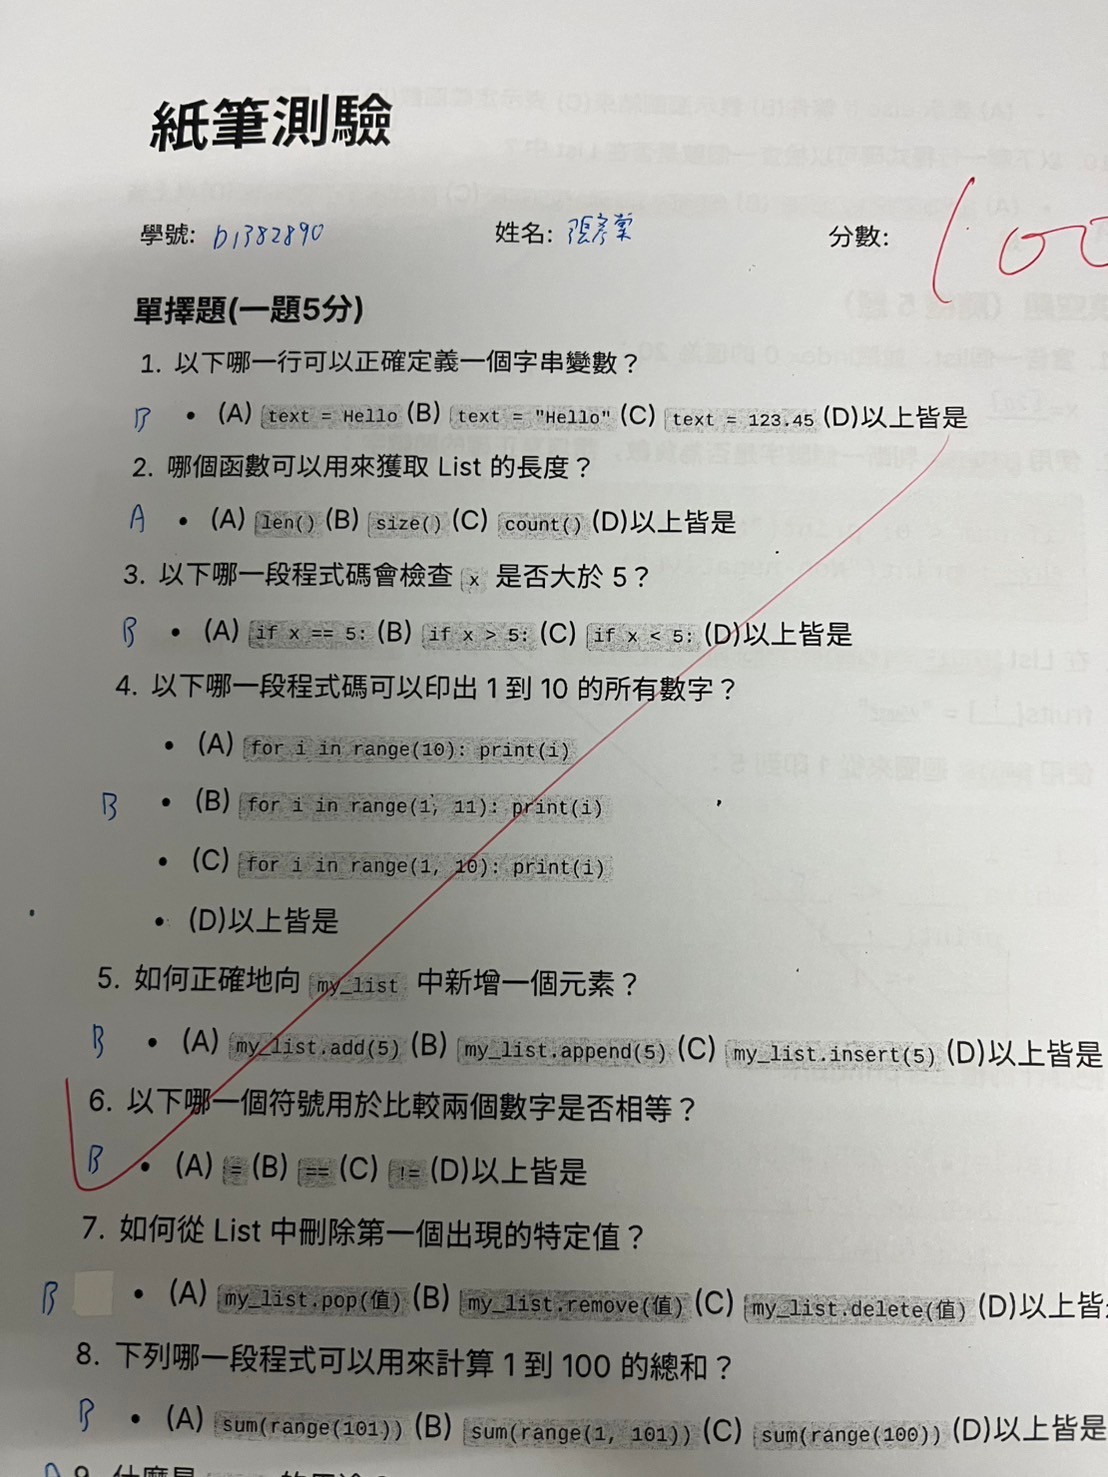 紙筆測驗
學號: b1382890 姓名: 張彥棠 分數: 100
單擇題(一題5分)
1. 以下哪一行可以正確定義一個字串變數？
B • (A) text = Hello (B) text = "Hello" (C) text = 123.45 (D)以上皆是
2. 哪個函數可以用來獲取 List 的長度？
A • (A) len() (B) size() (C) count() (D)以上皆是
3. 以下哪一段程式碼會檢查 x 是否大於 5？
B • (A) if x == 5: (B) if x > 5: (C) if x < 5: (D)以上皆是
4. 以下哪一段程式碼可以印出 1 到 10 的所有數字？
• (A) for i in range(10): print(i)
B • (B) for i in range(1, 11): print(i)
• (C) for i in range(1, 10): print(i)
• (D)以上皆是
5. 如何正確地向 my_list 中新增一個元素？
B • (A) my_list.add(5) (B) my_list.append(5) (C) my_list.insert(5) (D)以上皆是
6. 以下哪一個符號用於比較兩個數字是否相等？
B • (A) = (B) == (C) != (D)以上皆是
7. 如何從 List 中刪除第一個出現的特定值？
B • (A) my_list.pop(值) (B) my_list.remove(值) (C) my_list.delete(值) (D)以上皆
8. 下列哪一段程式可以用來計算 1 到 100 的總和？
B • (A) sum(range(101)) (B) sum(range(1, 101)) (C) sum(range(100)) (D)以上皆是
9. 什麼是